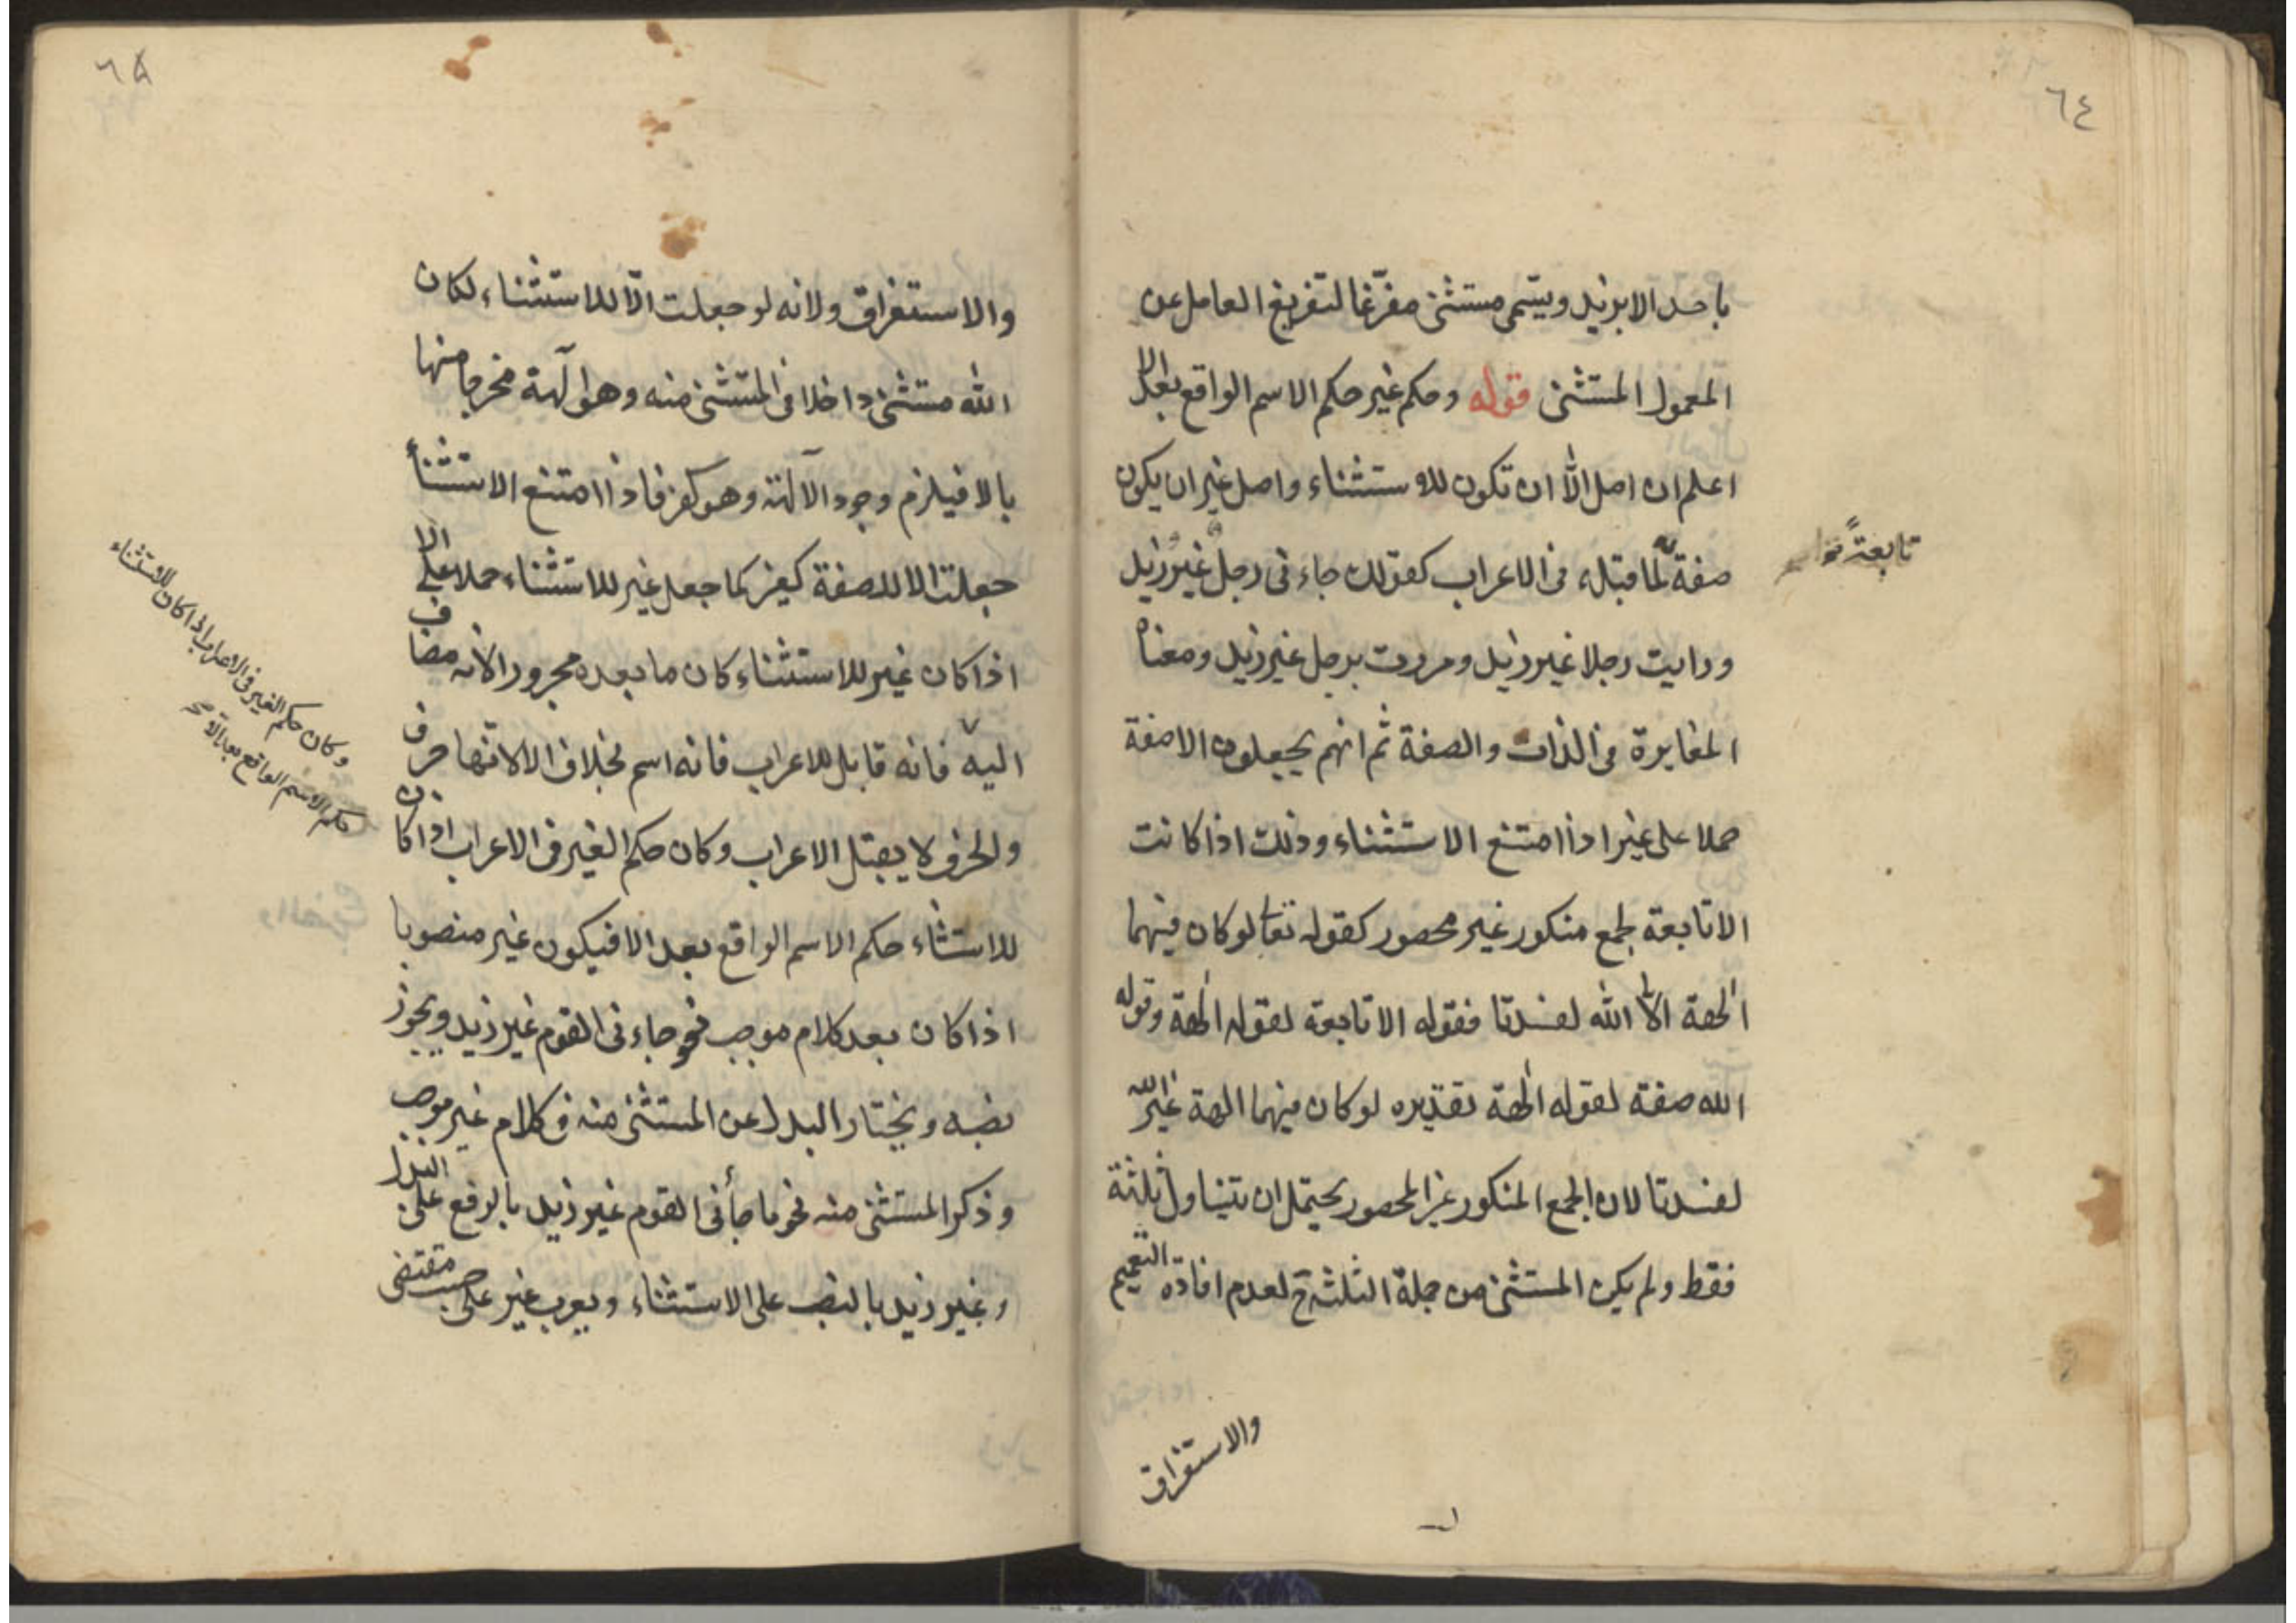 ٦٤
باحد الا بزيد ويسمى مستثنى مفرّغا لتفريغ العامل عن
المعمول المستثنى قوله وحكم غير حكم الاسم الواقع بعد الا
اعلم ان اصل الّا ان تكون للاستثناء واصل غير ان يكون
صفة لما قبله فى الاعراب كقولك جاءنى رجل غير زيد
ورايت رجلا غير زيد ومررت برجل غير زيد ومعناه
المغايرة فى الذات والصفة ثم انهم يجعلون الا صفة
حملا على غير اذا امتنع الاستثناء وذلك اذا كانت
الا تابعة لجمع منكور غير محصور كقوله تعا لو كان فيهما
الهة الّا الله لفسدتا فقوله الا تابعة لقوله الهة وقوله
الله صفة لقوله الهة تقديره لو كان فيهما الهة غير الله
لفسدتا لان الجمع المنكور غير المحصور يحتمل ان يتناول ثلثة
فقط ولم يكن المستثنى من جملة الثلثة ح لعدم افادة التعميم
تابعة
والاستغراق
٦٥
والاستغراق ولانه لو جعلت الّا للاستثناء لكان
الله مستثنى داخلا فى المستثنى منه وهو آلهة مخرجا منها
بالا فيلزم وجود الآلهة وهو كفر فاذا امتنع الاستثنأ
جعلت الا للصفة كغير كما جعل غير للاستثناء حملا على الا
اذا كان غير للاستثناء كان ما بعده مجرورا لانه مضاف
اليه فانه قابل للاعراب فانه اسم بخلاف الا لانها حرف
والحرف لا يقبل الاعراب وكان حكم الغير فى الاعراب اذا كان
للاستثناء حكم الاسم الواقع بعد الا فيكون غير منصوبا
اذا كان بعد كلام موجب نحو جاءنى القوم غير زيد ويجوز
نصبه ويختار البدل عن المستثنى منه فى كلام غير موجب
وذكر المستثنى منه نحو ما جأنى القوم غير زيد بالرفع على البدل
وغير زيد بالنصب على الاستثناء ويعرب غير على حسب مقتضى
وكان حكم الغير فى الاعراب اذا كان للاستثناء
حكم الاسم الواقع بعد الا صح